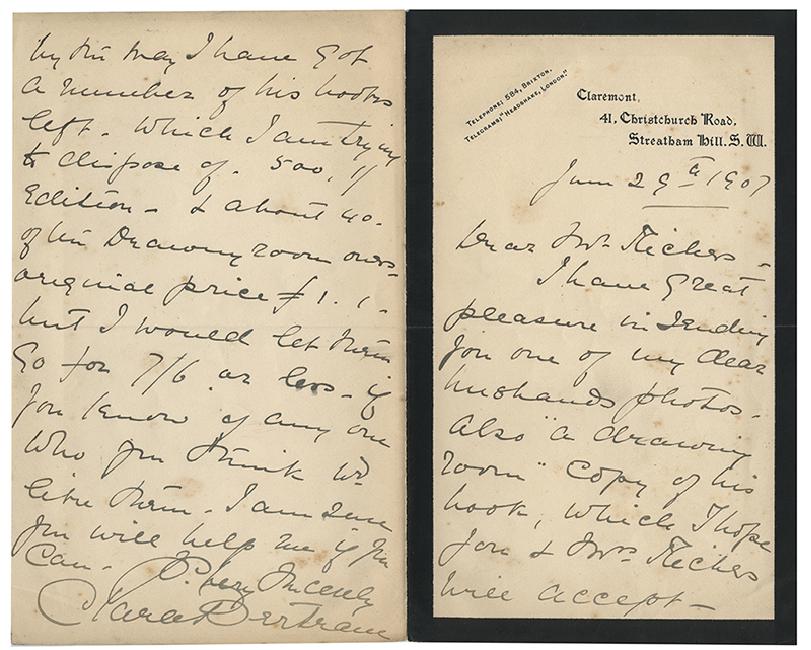 Telephone: 584, Brixton.
Telegrams; "Headshake, London."
Claremont,
41, Christchurch Road,
Streatham Hill. S.W.
June 29th 1907
Dear Mr.
I have great
pleasure in sending
you one of my dear
husbands photos -
also "a drawing
room" copy of his
book, which I hope
you & Mrs
will accept -
by the way I have got
a number of his books
left - which I am trying
to dispose of. 500,
Edition - & about 40.
of the Drawing room ones -
original price £1. 1. -
but I would let them
go for 7/6 or less - if
you know of any one
who you think wd
like them - I am sure
you will help me if you
can -
Very Sincerely
Clara Bertram